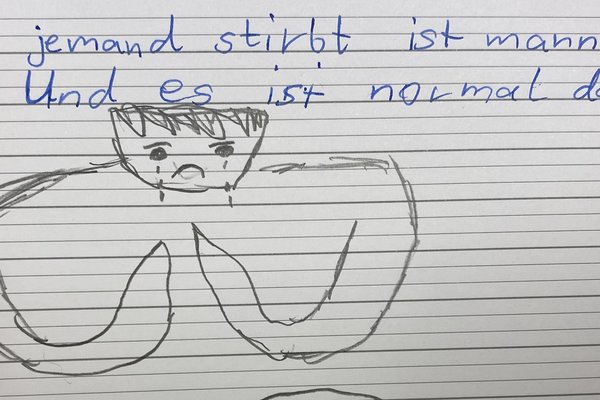 jemand stirbt ist mann
Und es ist normal da